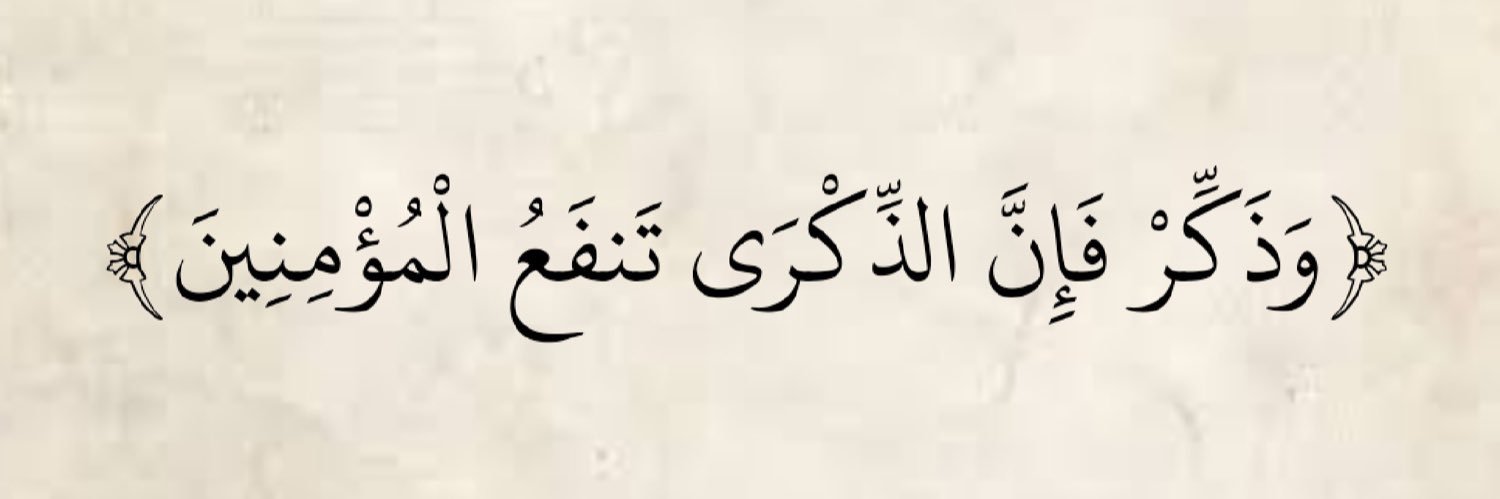 ﴿وَذَكِّرْ فَإِنَّ الذِّكْرَى تَنفَعُ الْمُؤْمِنِينَ﴾